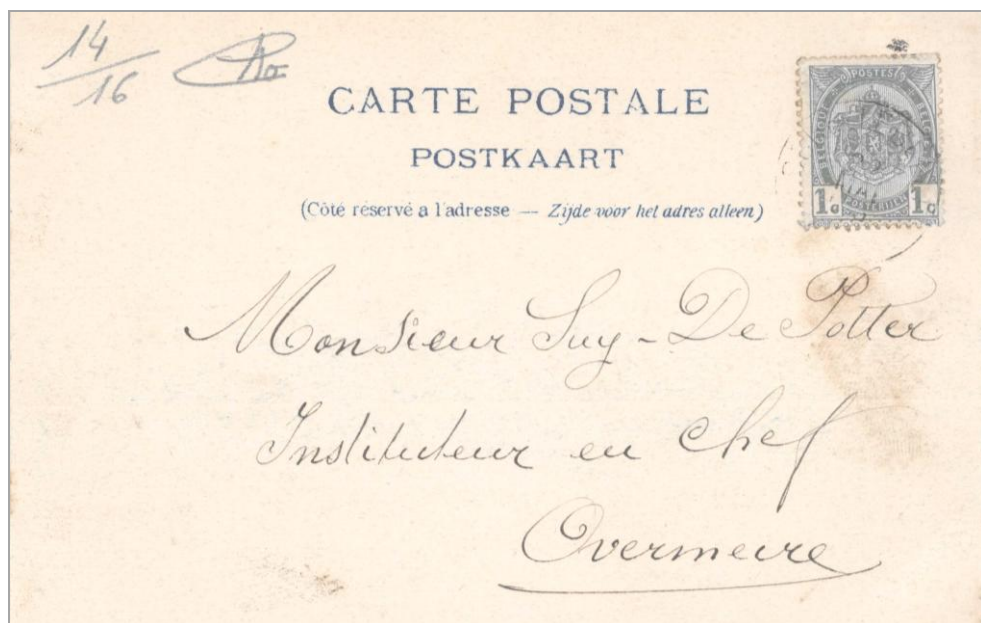 14
16
CARTE POSTALE
POSTKAART
(Côté réservé a l'adresse — Zijde voor het adres alleen)
POSTES
BELGIQUE
1c 1c
POSTERIJEN
Monsieur Suy-De Potter
Instituteur en chef
Overmeire